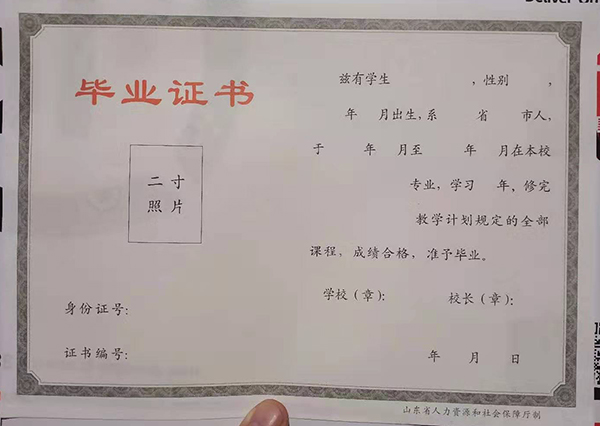 毕业证书
二寸
照片
身份证号：
证书编号：
兹有学生 ，性别 ，
年 月出生，系 省 市人，
于 年 月至 年 月在本校
专业，学习 年、修完
教学计划规定的全部
课程，成绩合格，准予毕业。
学校（章）： 校长（章）：
年 月 日
山东省人力资源和社会保障厅制